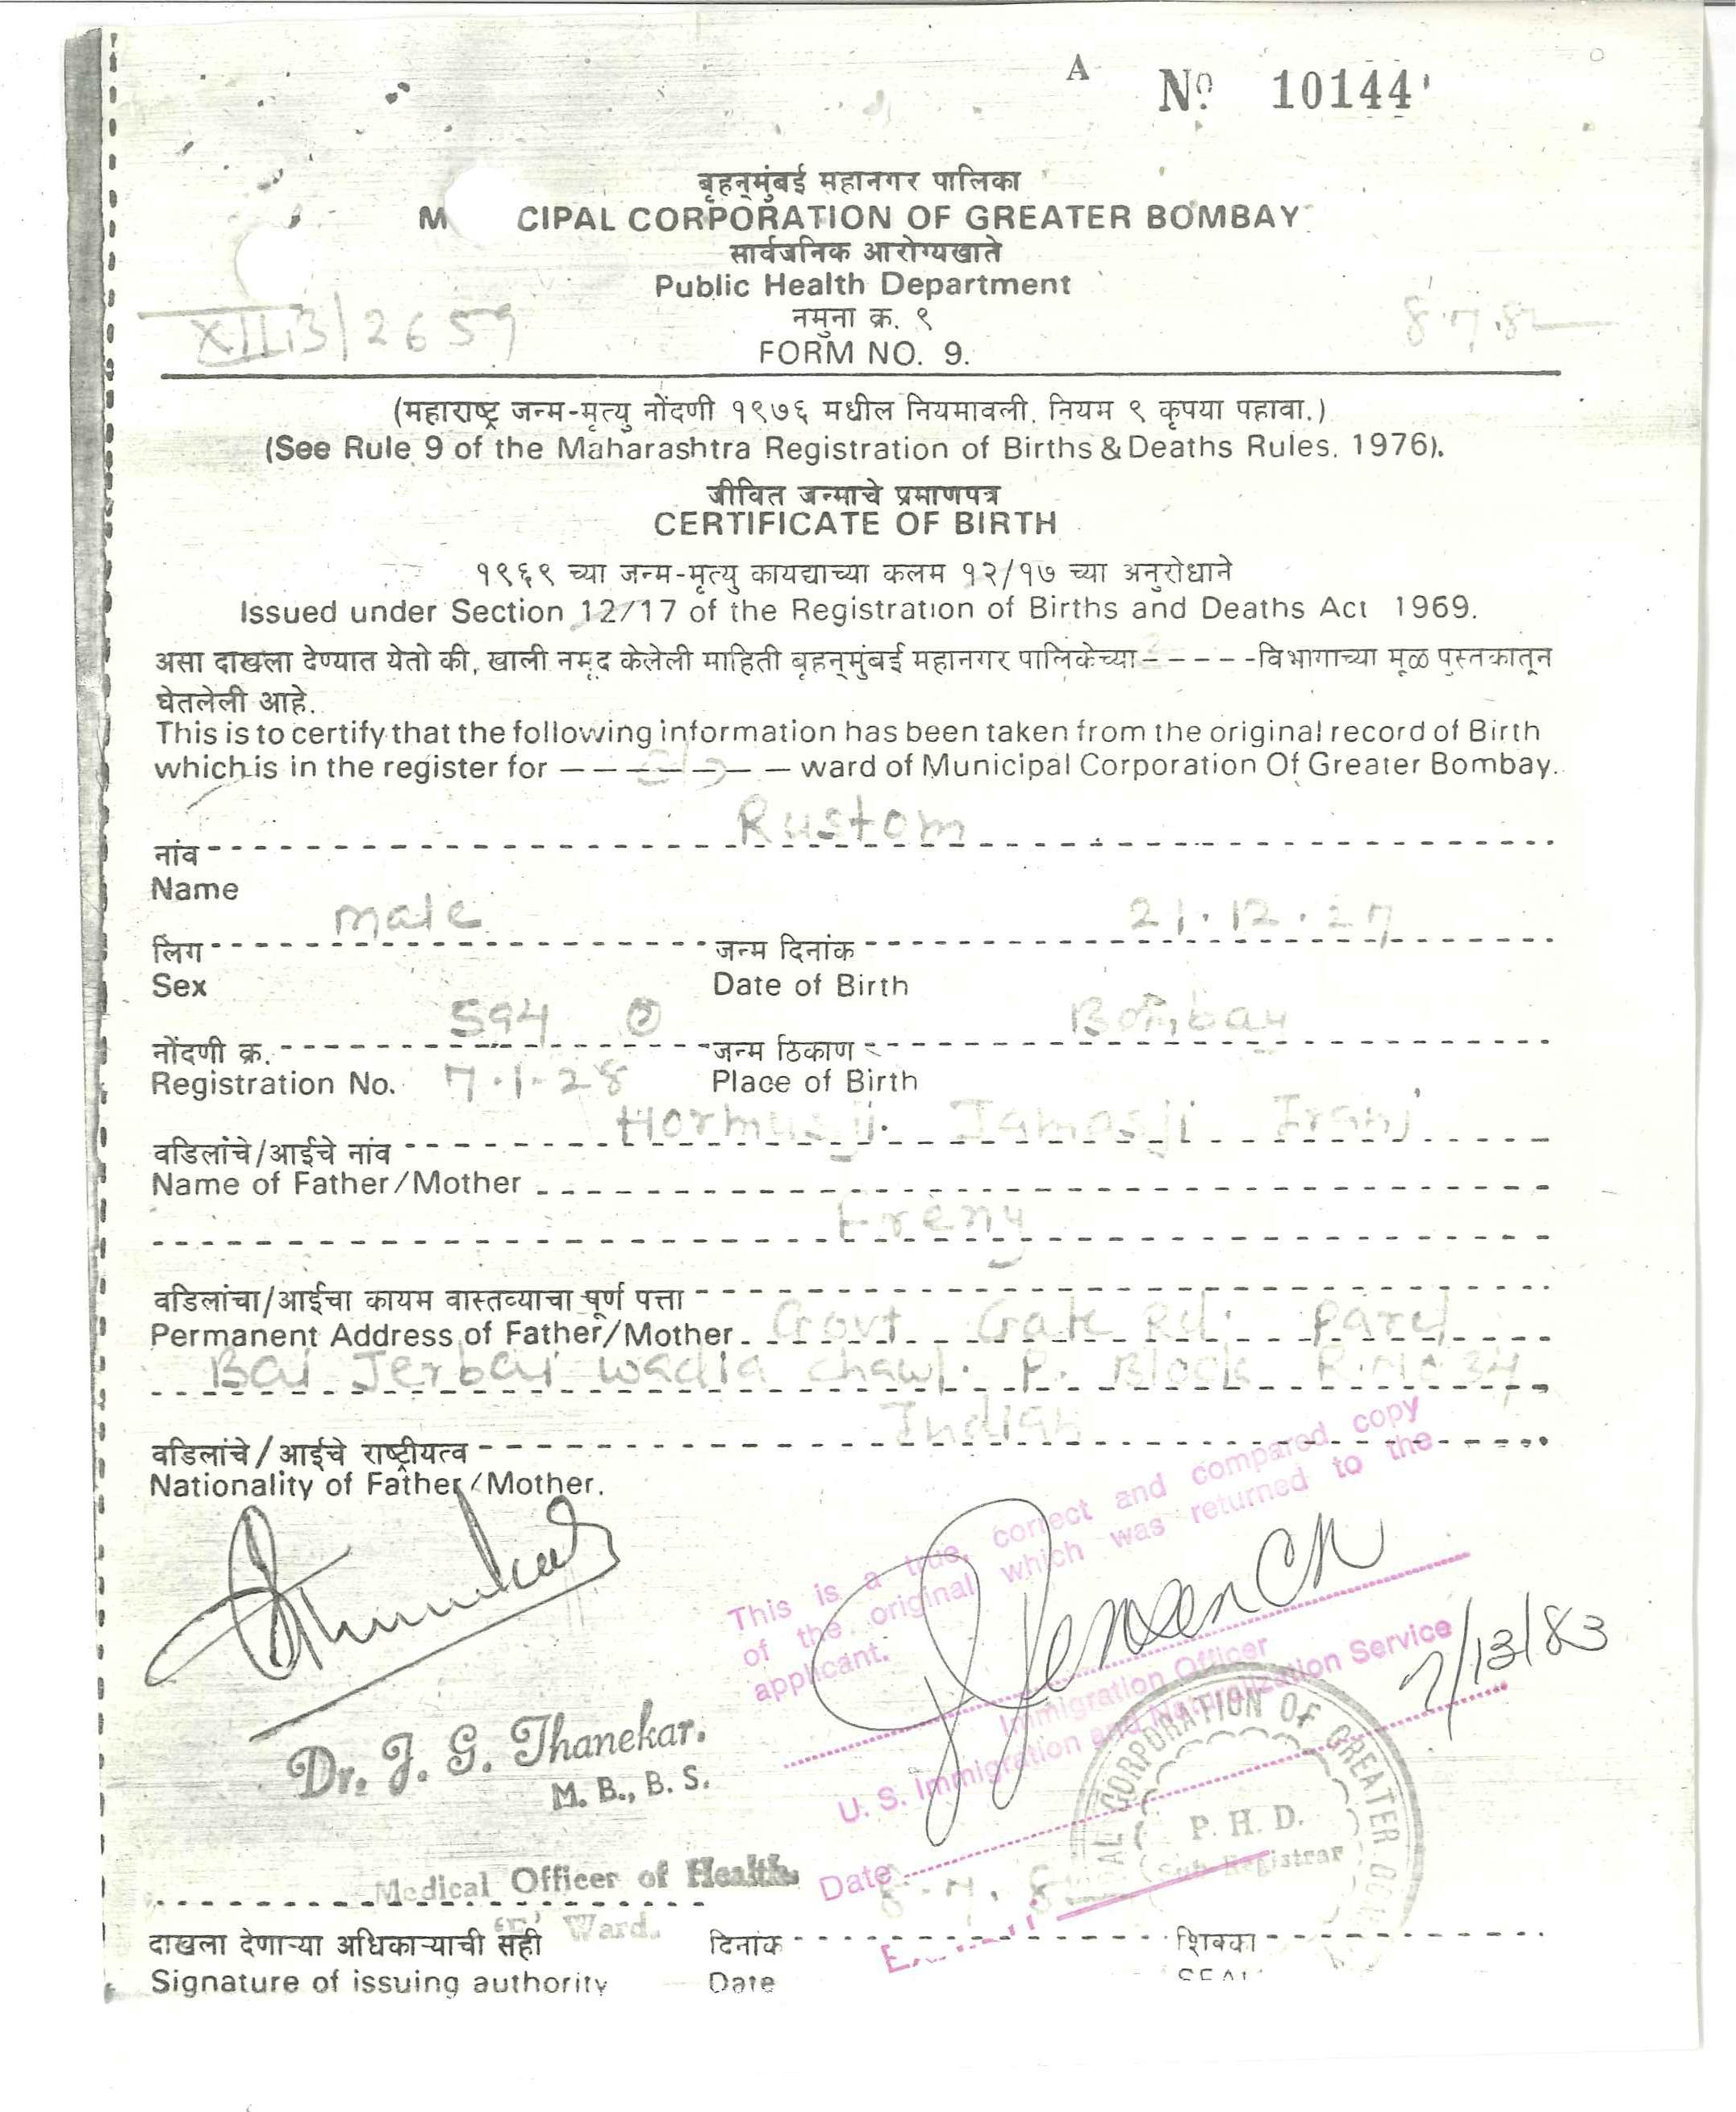 A № 10144
बृहन्मुंबई महानगर पालिका
M CIPAL CORPORATION OF GREATER BOMBAY
सार्वजनिक आरोग्यखाते
Public Health Department
नमुना क्र. ९
XII.3/2659 8.7.82
FORM NO. 9.
(महाराष्ट्र जन्म-मृत्यु नोंदणी १९७६ मधील नियमावली. नियम ९ कृपया पहावा.)
(See Rule 9 of the Maharashtra Registration of Births & Deaths Rules. 1976).
जीवित जन्माचे प्रमाणपत्र
CERTIFICATE OF BIRTH
१९६९ च्या जन्म-मृत्यु कायद्याच्या कलम १२/१७ च्या अनुरोधाने
Issued under Section 12/17 of the Registration of Births and Deaths Act 1969.
असा दाखला देण्यात येतो की, खाली नमूद केलेली माहिती बृहन्मुंबई महानगर पालिकेच्या - - - - - विभागाच्या मूळ पुस्तकातून
घेतलेली आहे.
This is to certify that the following information has been taken from the original record of Birth
which is in the register for — — — — — — — ward of Municipal Corporation Of Greater Bombay.
Rustom
नांव
Name
male 21.12.27
लिंग जन्म दिनांक
Sex Date of Birth
594 Bombay
नोंदणी क्र. जन्म ठिकाण
Registration No. 7.1.28 Place of Birth
Hormusji Jamasji Irani
वडिलांचे/आईचे नांव
Name of Father/Mother
Freny
वडिलांचा/आईचा कायम वास्तव्याचा पूर्ण पत्ता
Permanent Address of Father/Mother Govt Gate Rd. Parel
Bai Jerbai Wadia Chawl. P. Block R.No 34
Indian
वडिलांचे/आईचे राष्ट्रीयत्व
Nationality of Father/Mother.
This is a true, correct and compared copy
of the original which was returned to the
applicant.
Immigration Officer
U. S. Immigration and Naturalization Service
Date 7/13/83
Dr. J. G. Thanekar.
M. B., B. S.
MUNICIPAL CORPORATION OF GREATER
P. H. D.
Sub Registrar
Medical Officer of Health
Ward.
8.7.82
दाखला देणाऱ्या अधिकाऱ्याची सही दिनांक शिक्का
Signature of issuing authority Date SEAL